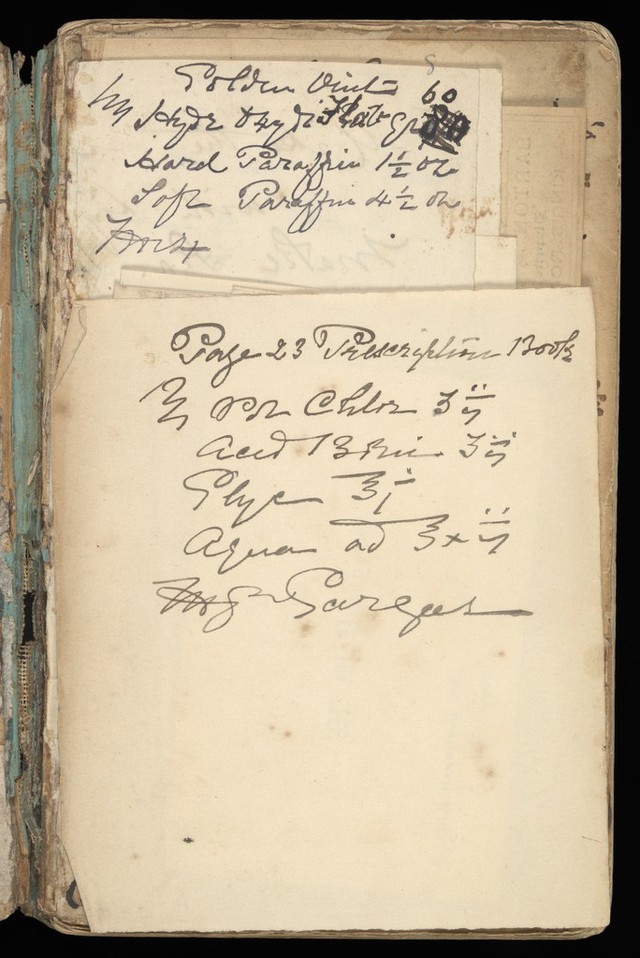 Golden Oint
℞ Hydr Oxydi Flav Gr 60
Hard Paraffin 1½ oz
Soft Paraffin 4½ oz
Mix
Page 23 Prescription Book
℞ Pot Chlor ʒ ij
Acid Boric ʒ ij
Glyc ℥ j
Aqua ad ℥ xij
Mft Gargar